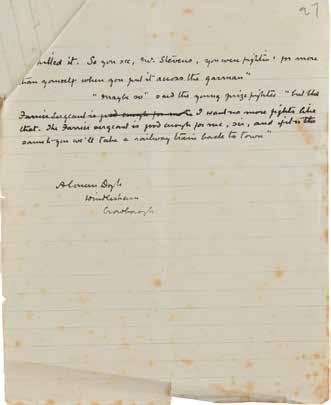 27
killed it. So you see, Mr. Stevens, you were fightin' for more
than yourself when you put it across the garman"
"Maybe so" said the young prize fighter "but that
Farrier Sergeant is good enough for me. I want no more fights like
that. The Farrier Sergeant is good enough for me, sir, and if it is the
same to you we'll take a railway train back to town"
A Conan Doyle
Windlesham
Crowborough